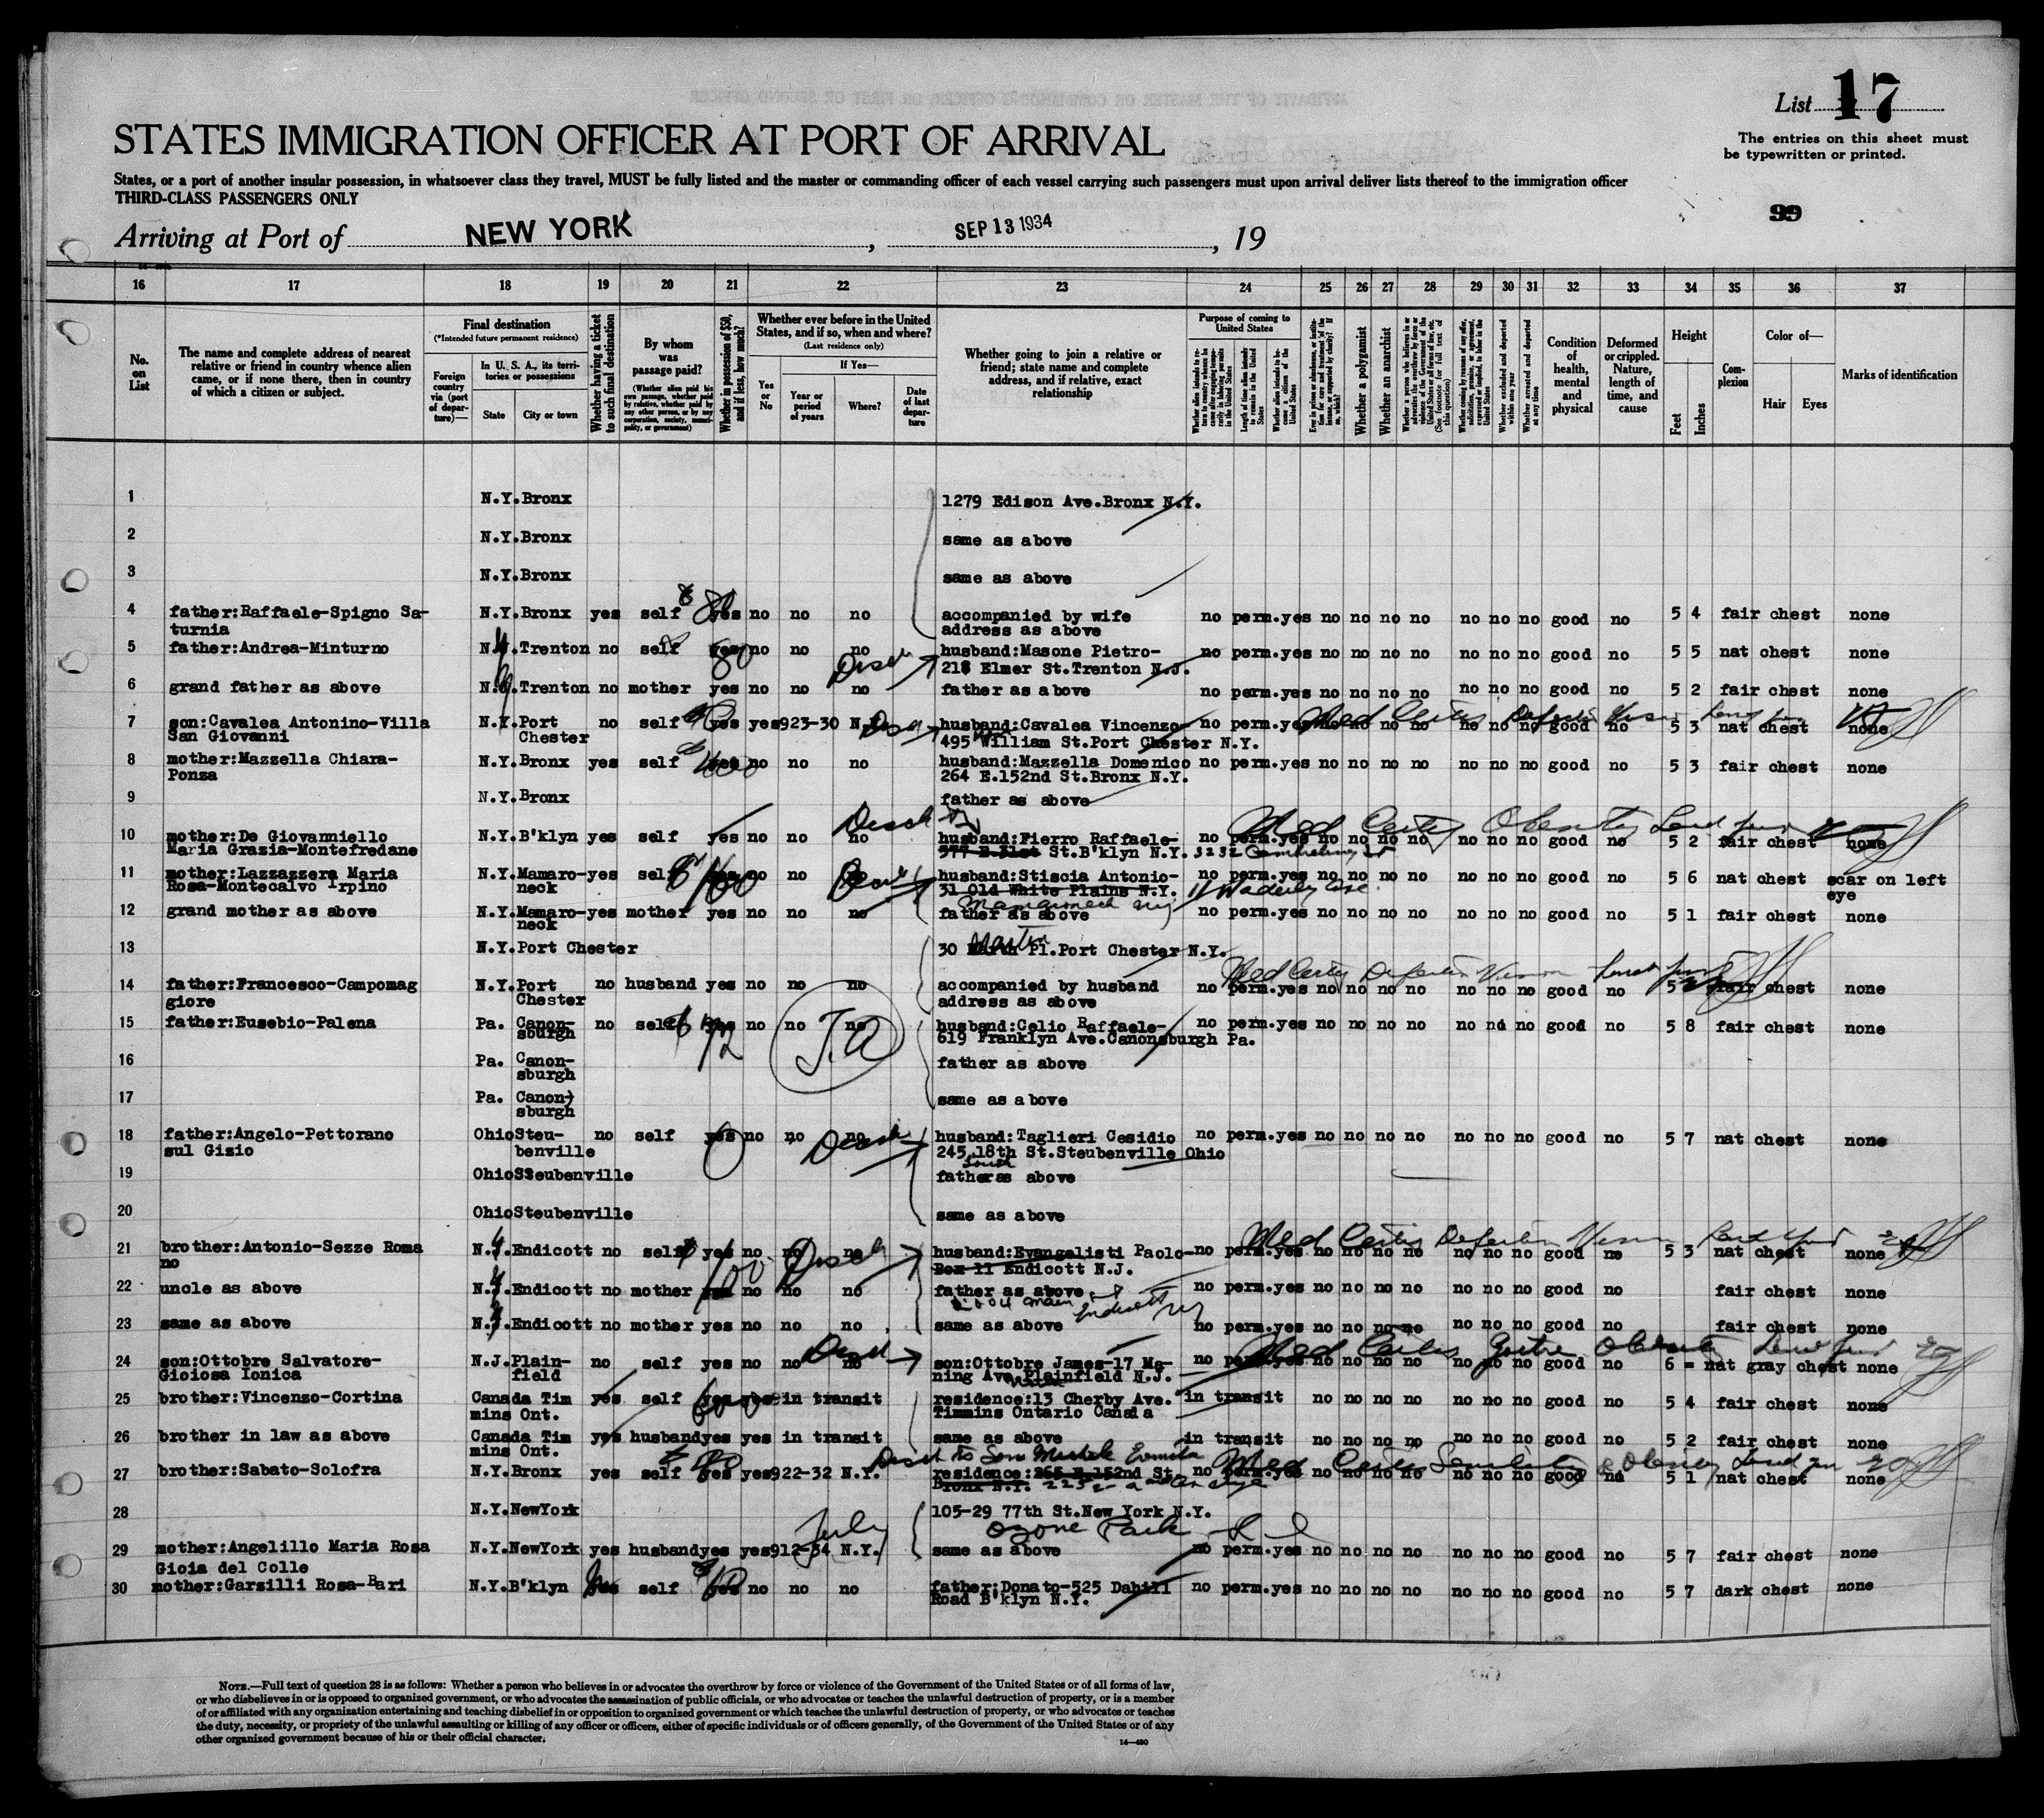 List 17
The entries on this sheet must
be typewritten or printed.
STATES IMMIGRATION OFFICER AT PORT OF ARRIVAL
States, or a port of another insular possession, in whatsoever class they travel, MUST be fully listed and the master or commanding officer of each vessel carrying such passengers must upon arrival deliver lists thereof to the immigration officer
THIRD-CLASS PASSENGERS ONLY
99
Arriving at Port of NEW YORK, SEP 13 1934, 19
16 17 18 19 20 21 22 23 24 25 26 27 28 29 30 31 32 33 34 35 36 37
No. on List
The name and complete address of nearest relative or friend in country whence alien came, or if none there, then in country of which a citizen or subject.
Final destination
(*Intended future permanent residence)
Foreign country via (port of departure)—
In U. S. A., its territories or possessions
State
City or town
Whether having a ticket to such final destination
By whom was passage paid?
(Whether alien paid his own passage, whether paid by relative, whether paid by any other person, or by any corporation, society, municipality, or government)
Whether in possession of $50, and if less, how much?
Whether ever before in the United States, and if so, when and where?
(Last residence only)
Yes or No
If Yes—
Year or period of years
Where?
Date of last departure
Whether going to join a relative or friend; state name and complete address, and if relative, exact relationship
Purpose of coming to United States
Length of time alien intends to remain in the United States
Whether alien intends to become a citizen of the United States
Whether a polygamist
Whether an anarchist
(See footnote for full text of this question)
Whether excluded and deported within one year
Whether arrested and deported at any time
Condition of health, mental and physical
Deformed or crippled. Nature, length of time, and cause
Height
Feet
Inches
Complexion
Color of—
Hair
Eyes
Marks of identification
1 N.Y. Bronx 1279 Edison Ave.Bronx N.Y.
2 N.Y. Bronx same as above
3 N.Y. Bronx same as above
4 father:Raffaele-Spigno Sa- N.Y. Bronx yes self yes no no no accompanied by wife no perm. yes no no no no no no no good no 5 4 fair chest none
turnia address as above
5 father:Andrea-Minturno Trenton no self yes no no no husband:Masone Pietro- no perm. yes no no no no no no no good no 5 5 nat chest none
218 Elmer St.Trenton N.J.
6 grand father as above Trenton no mother yes no no no father as above no perm. yes no no no no no no no good no 5 2 fair chest none
7 son:Cavalea Antonino-Villa N.Y. Port no self yes yes 923-30 husband:Cavalea Vincenzo- no perm. yes no no no no no no no good no 5 3 nat chest none
San Giovanni Chester 495 William St.Port Chester N.Y.
8 mother:Mazzella Chiara- N.Y. Bronx yes self no no no husband:Mazzella Domenico no perm. yes no no no no no no no good no 5 3 fair chest none
Ponza 264 E.152nd St.Bronx N.Y.
9 N.Y. Bronx father as above
10 mother:De Giovanniello N.Y. B'klyn yes self yes no no no husband:Fierro Raffaele- no perm. yes no no no no no no no good no 5 2 fair chest none
Maria Grazia-Montefredane St.B'klyn N.Y. 3232
11 mother:Lazzazzera Maria N.Y. Mamaro- yes self no no husband:Stiscia Antonio- no perm. yes no no no no no no no good no 5 6 nat chest scar on left
Rosa-Montecalvo Irpino neck 31 Old White Plains N.Y. eye
12 grand mother as above N.Y. Mamaro- yes mother yes no no no father as above no perm. yes no no no no no no no good no 5 1 fair chest none
neck
13 N.Y. Port Chester 30 Pl.Port Chester N.Y.
Med Certif Defective Vision
14 father:Francesco-Campomag N.Y. Port no husband yes no no no accompanied by husband no perm. yes no no no no no no no good no 5 fair chest none
giore Chester address as above
15 father:Eusebio-Palena Pa. Canon- no self no no no husband:Celio Raffaele- no perm. yes no no no no no no no good no 5 8 fair chest none
sburgh 619 Franklyn Ave.Canonsburgh Pa.
16 Pa. Canon- father as above
sburgh
17 Pa. Canon- same as above
sburgh
18 father:Angelo-Pettorano Ohio Steu- no self yes no no no husband:Taglieri Cesidio no perm. yes no no no no no no no good no 5 7 nat chest none
sul Gizio benville 245 18th St.Steubenville Ohio
South
19 Ohio Steubenville father as above
20 Ohio Steubenville same as above
21 brother:Antonio-Sezze Roma Endicott no self yes no no no husband:Evangelisti Paolo- no perm. yes no no no no no no no good no 5 3 nat chest none
no Box 11 Endicott N.J.
22 uncle as above Endicott no mother no no no father as above no perm. yes no no no no no no no good no fair chest none
23 same as above Endicott no mother yes no no no same as above no perm. yes no no no no no no no good no fair chest none
24 son:Ottobre Salvatore- N.J. Plain- no self yes no no no son:Ottobre James-17 Ma- no perm. yes no no no no no no no good no 6 = nat gray chest none
Gioiosa Ionica field ning Ave. Plainfield N.J.
25 brother:Vincenzo-Cortina Canada Tim yes self yes yes in transit residence:13 Cherby Ave. in transit no no no no no no no good no 5 4 fair chest none
mins Ont. Timmins Ontario Canada
26 brother in law as above Canada Tim yes husband yes yes in transit same as above in transit no no no no no no no good no 5 2 fair chest none
mins Ont.
27 brother:Sabato-Solofra N.Y. Bronx yes self yes yes 922-32 N.Y. residence:265 E.152nd St. no perm. yes no no no no no no no good no 5 1 nat chest none
Bronx N.Y.
28 N.Y. NewYork 105-29 77th St.New York N.Y.
July Ozone Park L I
29 mother:Angelillo Maria Rosa N.Y. NewYork yes husband yes yes 912-34 N.Y. same as above no perm. yes no no no no no no no good no 5 7 fair chest none
Gioia del Colle
30 mother:Garsilli Rosa-Bari N.Y. B'klyn self yes no no no father:Donato-525 Dahill no perm. yes no no no no no no no good no 5 7 dark chest none
Road B'klyn N.Y.
NOTE.—Full text of question 28 is as follows: Whether a person who believes in or advocates the overthrow by force or violence of the Government of the United States or of all forms of law,
or who disbelieves in or is opposed to organized government, or who advocates the assassination of public officials, or who advocates or teaches the unlawful destruction of property, or is a member
of or affiliated with any organization entertaining and teaching disbelief in or opposition to organized government or which teaches the unlawful destruction of property, or who advocates or teaches
the duty, necessity, or propriety of the unlawful assaulting or killing of any officer or officers, either of specific individuals or of officers generally, of the Government of the United States or of any
other organized government because of his or their official character.
14—430